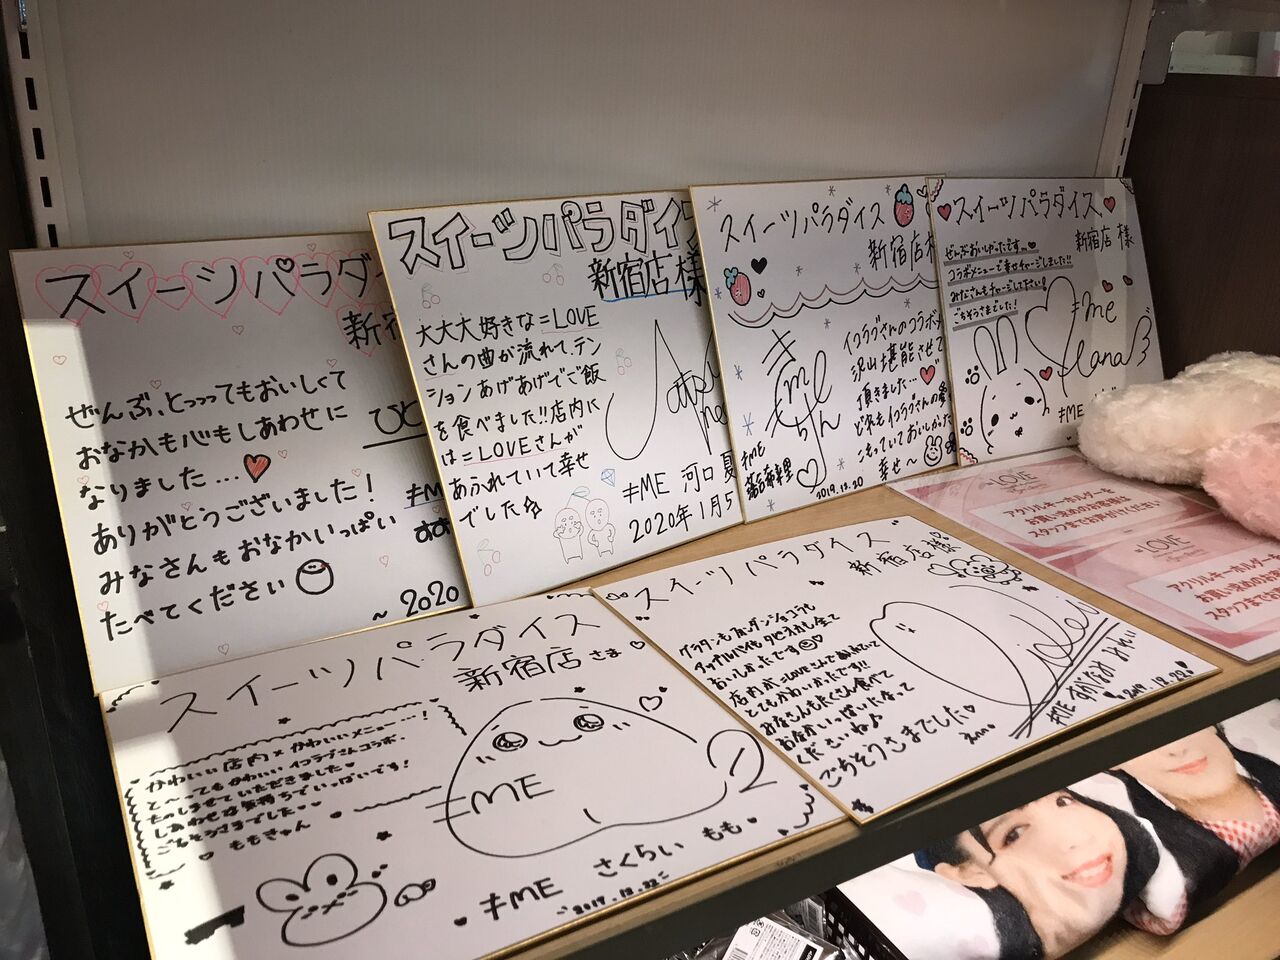 スイーツパラダイ
新宿
ぜんぶ、とっってもおいしくて
おなかも心もしあわせに
なりました…♥
ありがとうございました!
みなさんもおなかいっぱい
たべてください
~2020
スイーツパラダイス
新宿店様
大大大好きな=LOVE
さんの曲が流れて、テン
ションあげあげでご飯
を食べました!!店内に
は=LOVEさんが
あふれていて幸せ
でした☆
≠ME 河口 夏
2020年1月5
スイーツパラダイス
新宿店様
イコラブさんのコラボメ
沢山堪能させて
頂きました…♥
どれもイコラブさんの愛
こもっていておいしかった
幸せ~
≠ME
2019.12.20
♥スイーツパラダイス♥
新宿店 様
ぜんぶおいしかったです
コラボメニューで幸せチャージしました!!
みなさんもチャージして下さい!
ごちそうさまでした!
≠me
Hana
≠ME
スイーツパラダイス
新宿店 さま♡
かわいい店内×かわいいメニュー…!
と〜ってもかわいいイコラブさんコラボ、
たのしませていただきました♥
しあわせな気持ちでいっぱいです!
ごちそうさまでした♥
♡ももきゅん
≠ME
≠ME さくらい もも
2019.12.22
スイーツパラダイス
新宿店様
グラタンもフォンダンショコラも
アップルパイもタピオカも全て
おいしかったです♡
店内が=LOVEさんで
とてもかわいかったです!!
お客さんもたくさん食べて
お腹いっぱいになって
くださいね♪
ごちそうさまでした♡
≠ME
2019.12.22
=LOVE
アクリルキーホルダーを
お買い求めのお客様は
スタッフまでお声がけください
=LOVE
アクリルキーホルダーを
お買い求めのお客様は
スタッフまでお